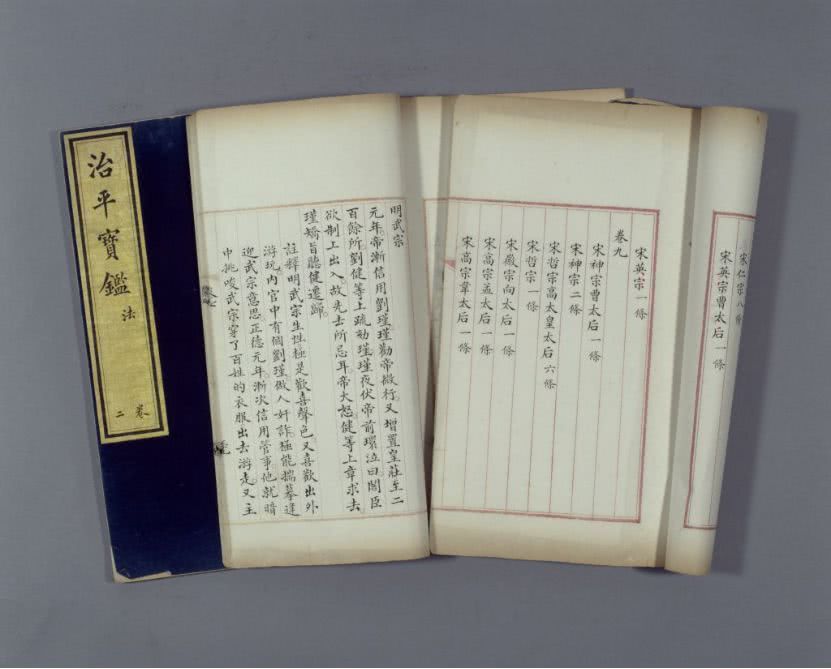 治平寶鑑
法
卷二
明武宗
元年帝漸信用劉瑾瑾勸帝微行又增置皇莊至二
百餘所劉健等上疏劾瑾瑾夜伏帝前環泣曰閣臣
欲制上出入故先去所忌耳帝大怒健等上章求去
瑾矯旨聽健遷歸
註釋明武宗生性極是歡喜聲色又喜歡出外
游玩內官中有個劉瑾做人奸詐極能揣摹逢
迎武宗意思正德元年漸次信用管事他就暗
中挑唆武宗穿了百姓的衣服出去游走又主
宋仁宗八條
宋英宗曹太后一條
宋英宗一條
卷九
宋神宗曹太后一條
宋神宗二條
宋哲宗高太皇太后六條
宋哲宗一條
宋徽宗向太后一條
宋高宗孟太后一條
宋高宗韋太后一條